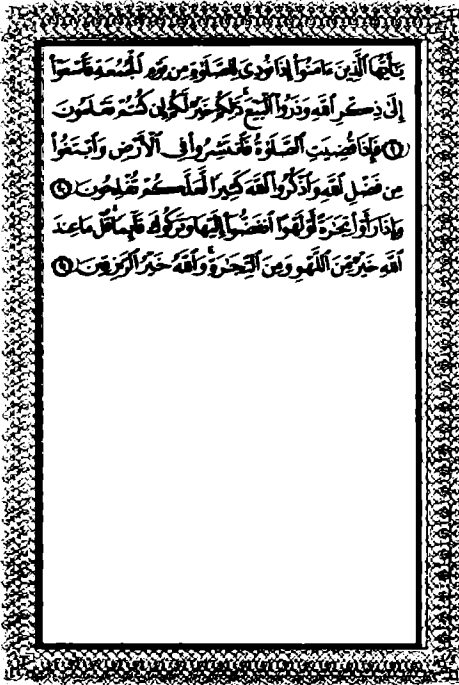 يَـٰٓأَيُّهَا ٱلَّذِينَ ءَامَنُوٓا۟ إِذَا نُودِىَ لِلصَّلَوٰةِ مِن يَوْمِ ٱلْجُمُعَةِ فَٱسْعَوْا۟
إِلَىٰ ذِكْرِ ٱللَّهِ وَذَرُوا۟ ٱلْبَيْعَ ذَٰلِكُمْ خَيْرٌ لَّكُمْ إِن كُنتُمْ تَعْلَمُونَ
فَإِذَا قُضِيَتِ ٱلصَّلَوٰةُ فَٱنتَشِرُوا۟ فِى ٱلْأَرْضِ وَٱبْتَغُوا۟
مِن فَضْلِ ٱللَّهِ وَٱذْكُرُوا۟ ٱللَّهَ كَثِيرًا لَّعَلَّكُمْ تُفْلِحُونَ
وَإِذَا رَأَوْا۟ تِجَـٰرَةً أَوْ لَهْوًا ٱنفَضُّوٓا۟ إِلَيْهَا وَتَرَكُوكَ قَآئِمًا قُلْ مَا عِندَ
ٱللَّهِ خَيْرٌ مِّنَ ٱللَّهْوِ وَمِنَ ٱلتِّجَـٰرَةِ وَٱللَّهُ خَيْرُ ٱلرَّٰزِقِينَ